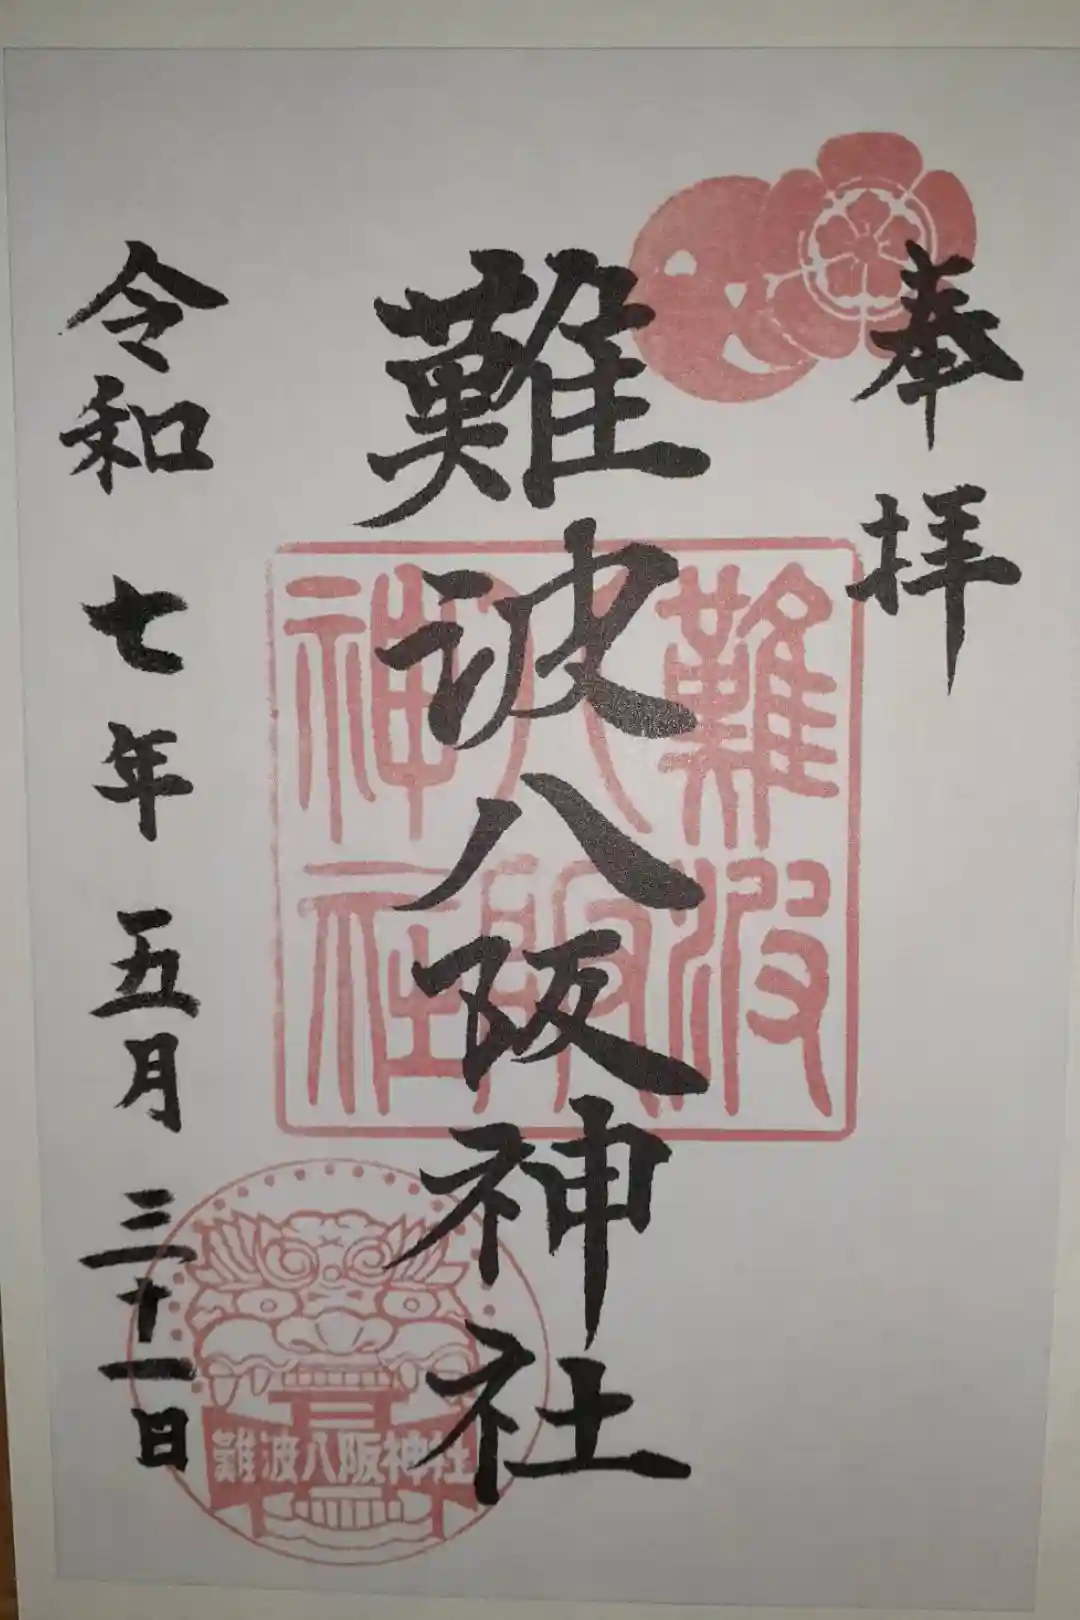 奉拝
難波八阪神社
難波八阪神社
令和七年五月三十一日
難波八阪神社